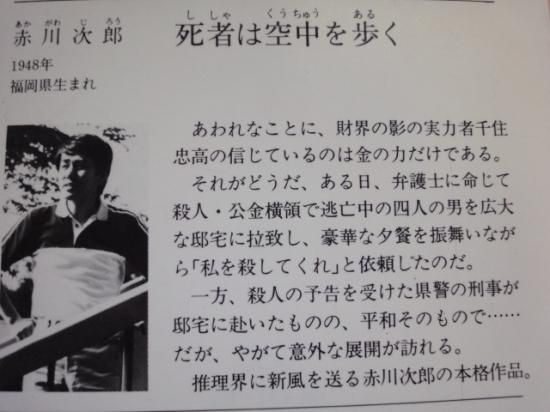 赤川次郎
あかがわじろう
死者は空中を歩く
ししゃくうちゅうある
1948年
福岡県生まれ
あわれなことに、財界の影の実力者千住
忠高の信じているのは金の力だけである。
それがどうだ、ある日、弁護士に命じて
殺人・公金横領で逃亡中の四人の男を広大
な邸宅に拉致し、豪華な夕餐を振舞いなが
ら「私を殺してくれ」と依頼したのだ。
一方、殺人の予告を受けた県警の刑事が
邸宅に赴いたものの、平和そのもので……
だが、やがて意外な展開が訪れる。
推理界に新風を送る赤川次郎の本格作品。